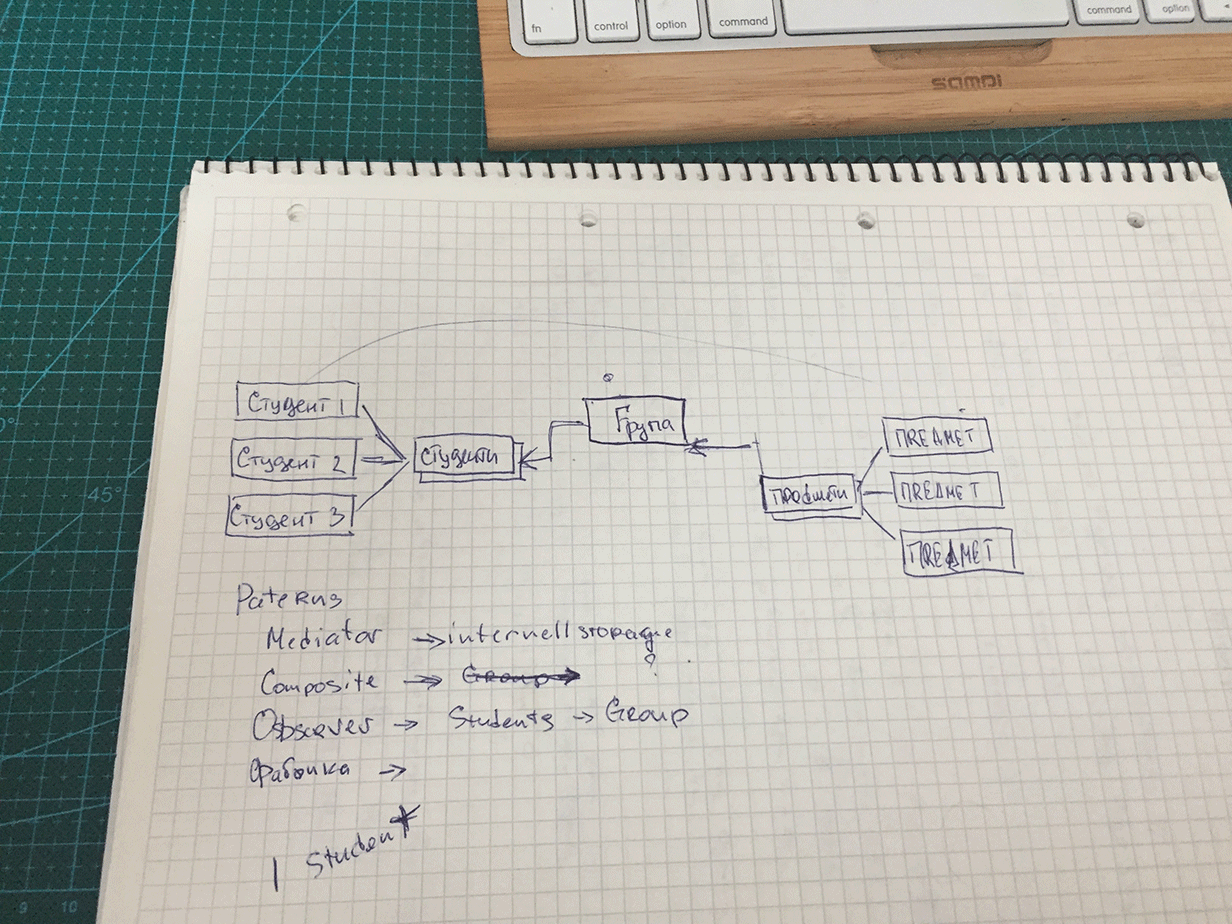 fn control option command command option
SAMDI
Студент 1
Група
Студент 2
Студенти
ПREДМЕТ
Студент 3
ПREДМЕТ
ПREДМЕТ
Paterns
Mediator → internell storague
?
Composite → Group →
Observer → Students → Group
Фабоика →
1 Student
45°
9 10